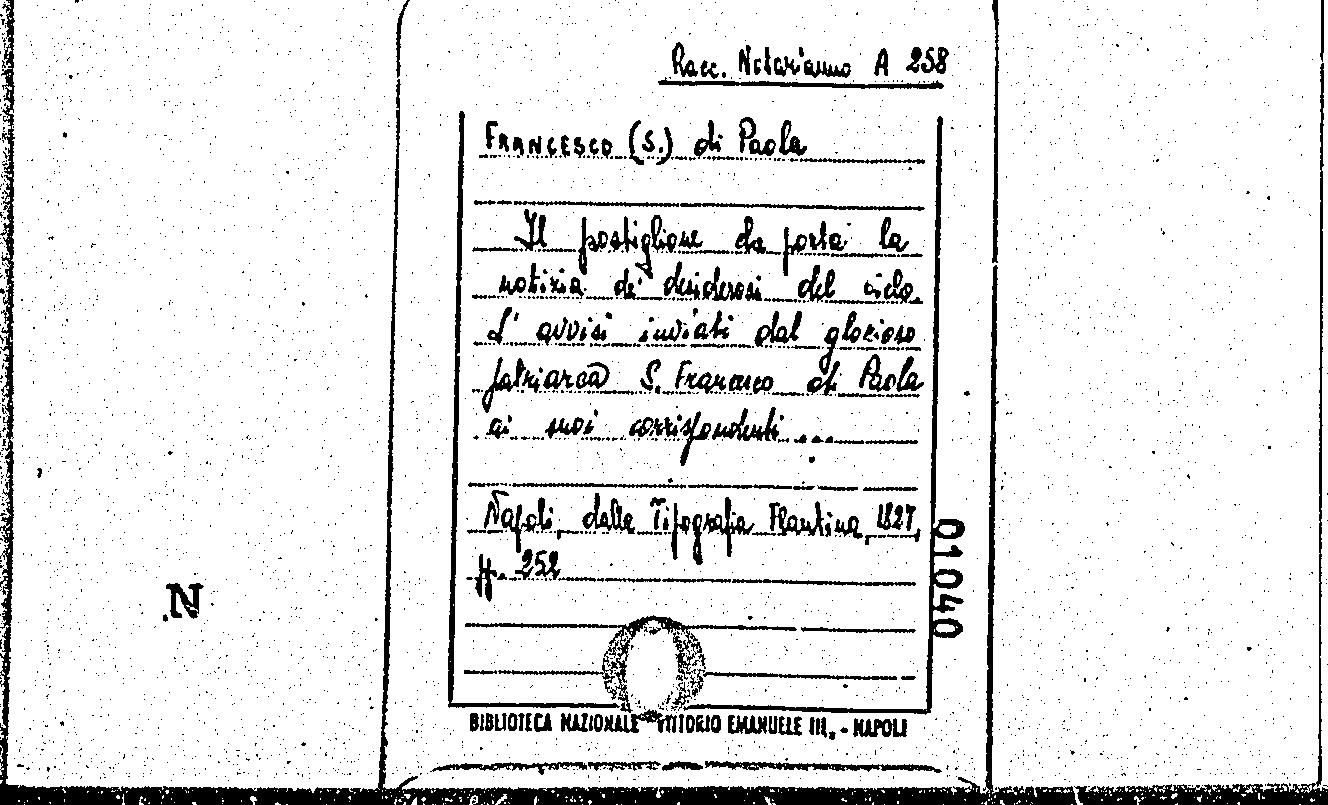 Racc. Notarianno A 258
FRANCESCO (S.) di Paola
Il postiglione che porta la
notizia de' desiderosi del cielo.
L' avvisi inviati dal glorioso
patriarca S. Francesco di Paola
ai suoi corrispondenti ...
Napoli, dalla Tipografia Plautina, 1827,
pp. 252
01040
N
BIBLIOTECA NAZIONALE VITTORIO EMANUELE III. - NAPOLI